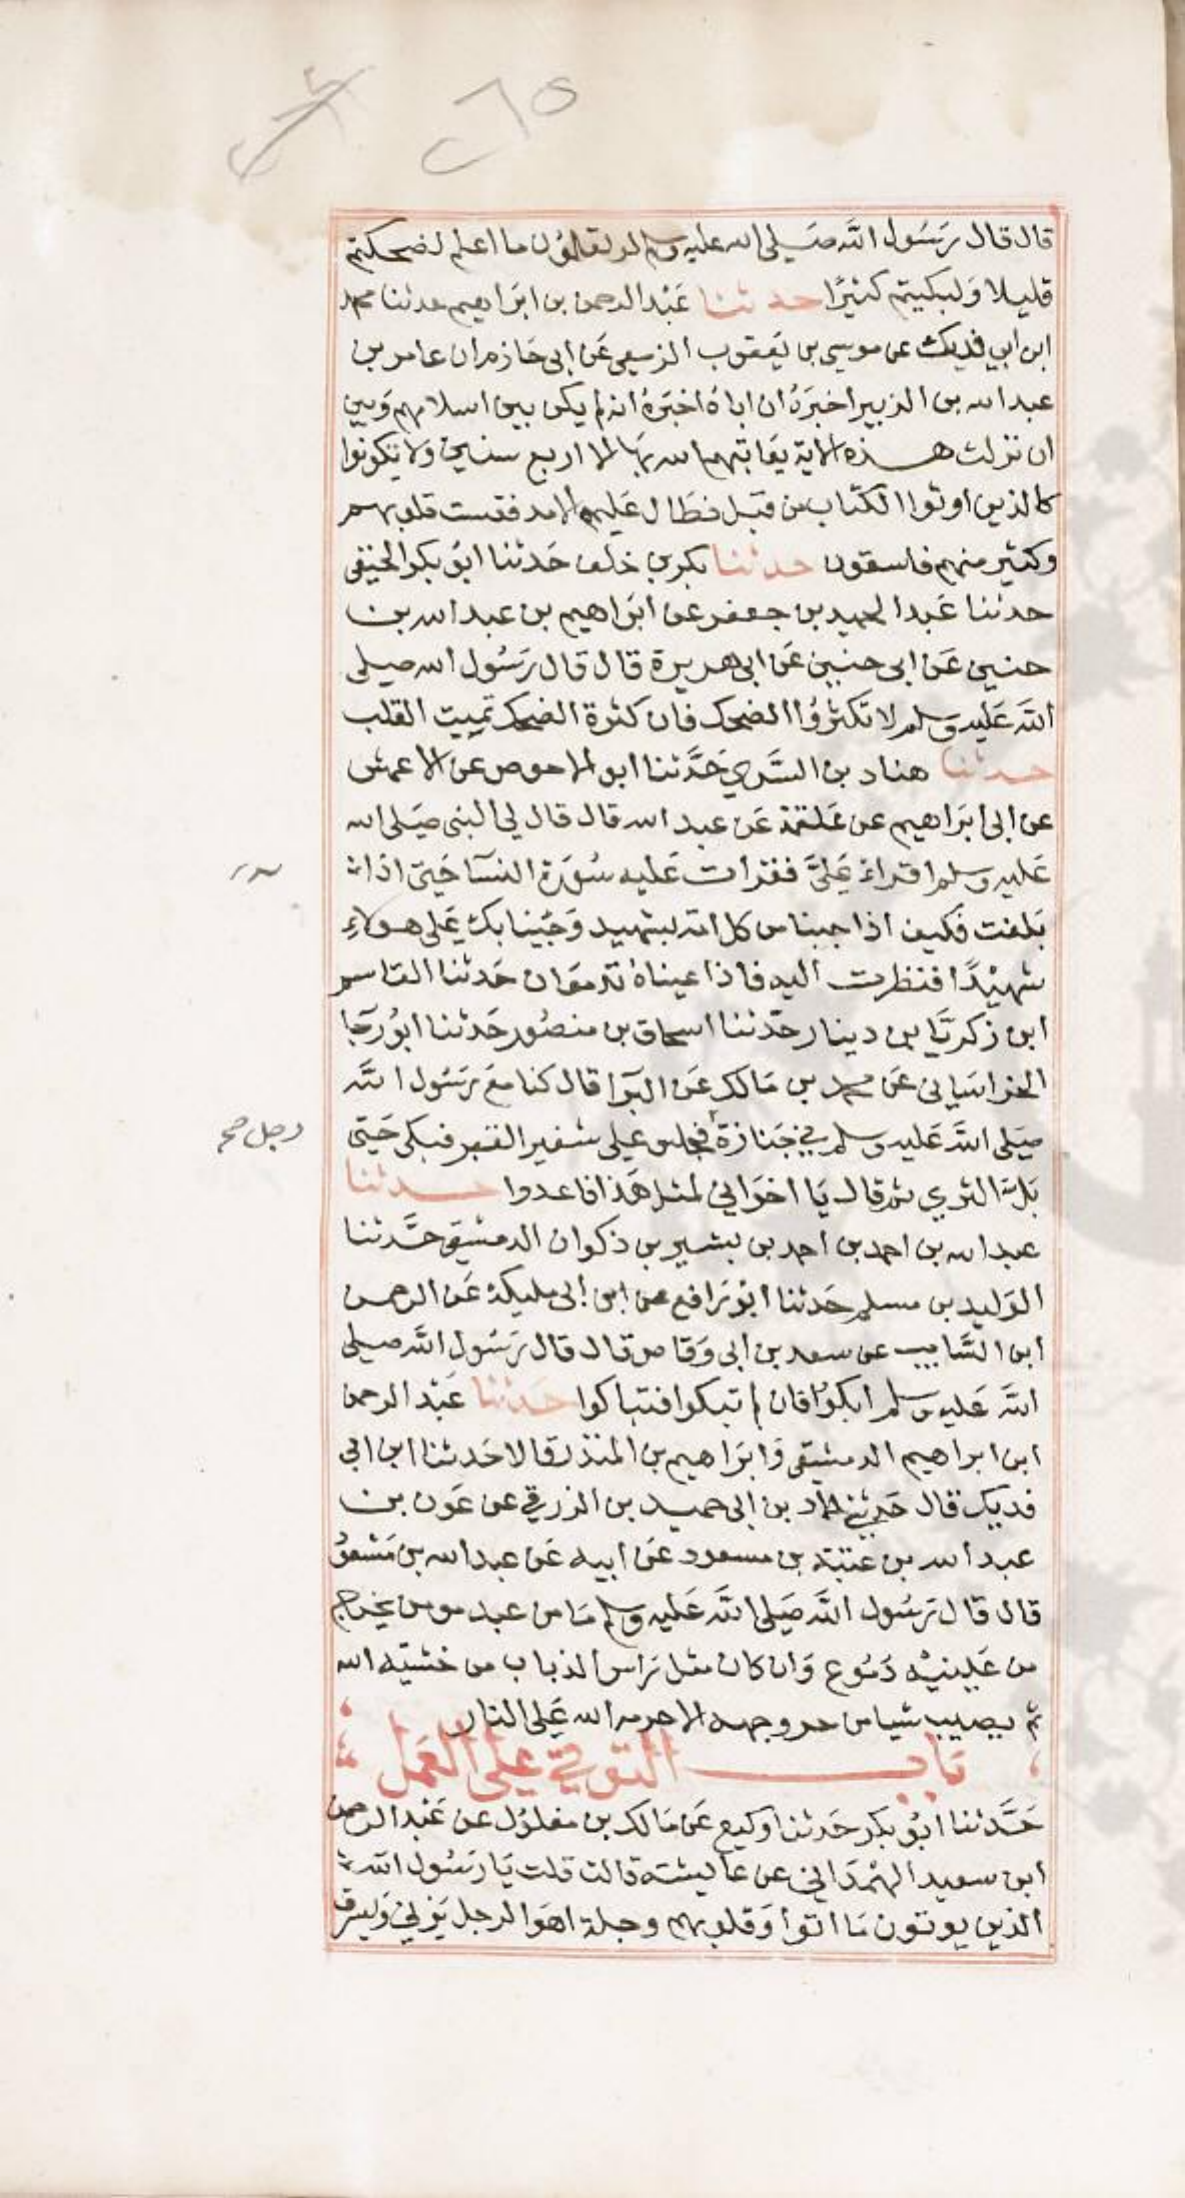 ٢٦٥
قال قال رَسُول الله صَلى الله عليه وسلم لو تعلمون ما اعلم لضحكتم
قليلا وَلبكيتم كثيرًا حدثنا عَبْد الرحمن بن ابرَاهيم حدثنا محمد
ابن ابي فديك عن موسى بن يَعقوب الزمعي عَن ابى حَازم ان عامر بن
عبد الله بن الزبير اخبرَهُ ان اباهُ اخبَرهُ انه لم يكن بين اسلامهم وَبين
ان نزلت هذه الاية يعَاتبهم الله بهَا الا اربع سنين ولا يَكونوا
كالذين اوتوا الكتاب من قبَل فطَال عَليهم الامد فقست قلوبهم
وكثير منهم فاسقون حدثنا بكر بن خلف حَدثنا ابُو بكر الحنفى
حدثنا عَبد الحميد بن جعفر عن ابرَاهيم بن عبد الله بن
حنين عَن ابى حنين عَن ابى هريرة قال قال رَسُول الله صلى
الله عَليه وسلم لا تَكثرُوا الضحك فان كثرة الضحك تميت القلب
حدثنا هناد بن السَّري حَدَّثنا ابو الاحوص عن الاعمش
عن ابى ابرَاهيم عن عَلقمة عَن عبد الله قال قال لي النبى صَلى الله
عَليه وسلم اقراء عَلىَّ فقرات عَليه سُورَة النسَآ حَتى اذا
بَلغت فكيف اذا جينا من كل امة بشهيد وَجَينا بك عَلى هولاءِ
شهيْدًا فنظرت اليه فاذا عيناهُ تدمعَان حَدثنا القاسم
ابن زكريَّا بن دينار حدثنا اسحاق بن منصُور حَدثنا ابُو رَجا
الخراسَانى عَن محمد بن مَالك عَن البرَا قال كنا مَع رَسُول الله
صَلى الله عَليه وسلم في جَنازة فجلس عَلى شفير القبر فبكى حَتى
بَلَّ الثرى ثم قال يَا اخوَاني لمثل هَذا فاعدوا حدثنا
عبد الله بن احمد بن احمد بن بشير بن ذكوان الدمشقى حَدَّثنا
الوَليد بن مسلم حَدثنا ابُو رَافع عن ابن ابى مليكة عَن الرحمن
ابن السَّايب عن سعد بن ابى وَقاص قال قال رَسُول الله صلى
الله عَليه وسلم ابكوُا فان لم تبكوا فتباكوا حَدثنا عَبْد الرحمن
ابن ابراهيم الدمشقى وَابرَاهيم بن المنذر قالا حَدثنا ابن ابى
فديك قال حَدثني حماد بن ابى حميد بن الزرقي عن عَون بن
عبد الله بن عتبَة بن مسعود عَن ابيه عَن عبد الله بن مَسْعوُ
قال قال رَسُول الله صَلى الله عَليه وسلم مَا من عبد مومن يخرج
من عَينيْه دَمُوع وَان كان مثل رَاس الذباب من خشيَة الله
ثم يصيب شيا من حر وجهه الا حرمه الله عَلى النار
بَاب التوقي عَلى العَمل
حَدَّثنا ابُو بكر حَدثنا وكيع عَن مَالك بن مغلوُل عن عَبْد الرحمن
ابن سعيد الهمْدَاني عن عايشة قالت قلت يَا رَسُول الله
الذين يوتون مَا اتوا وَقلوبهم وجلة اهوَ الرجل يَزني وَيسرق
رجل صح